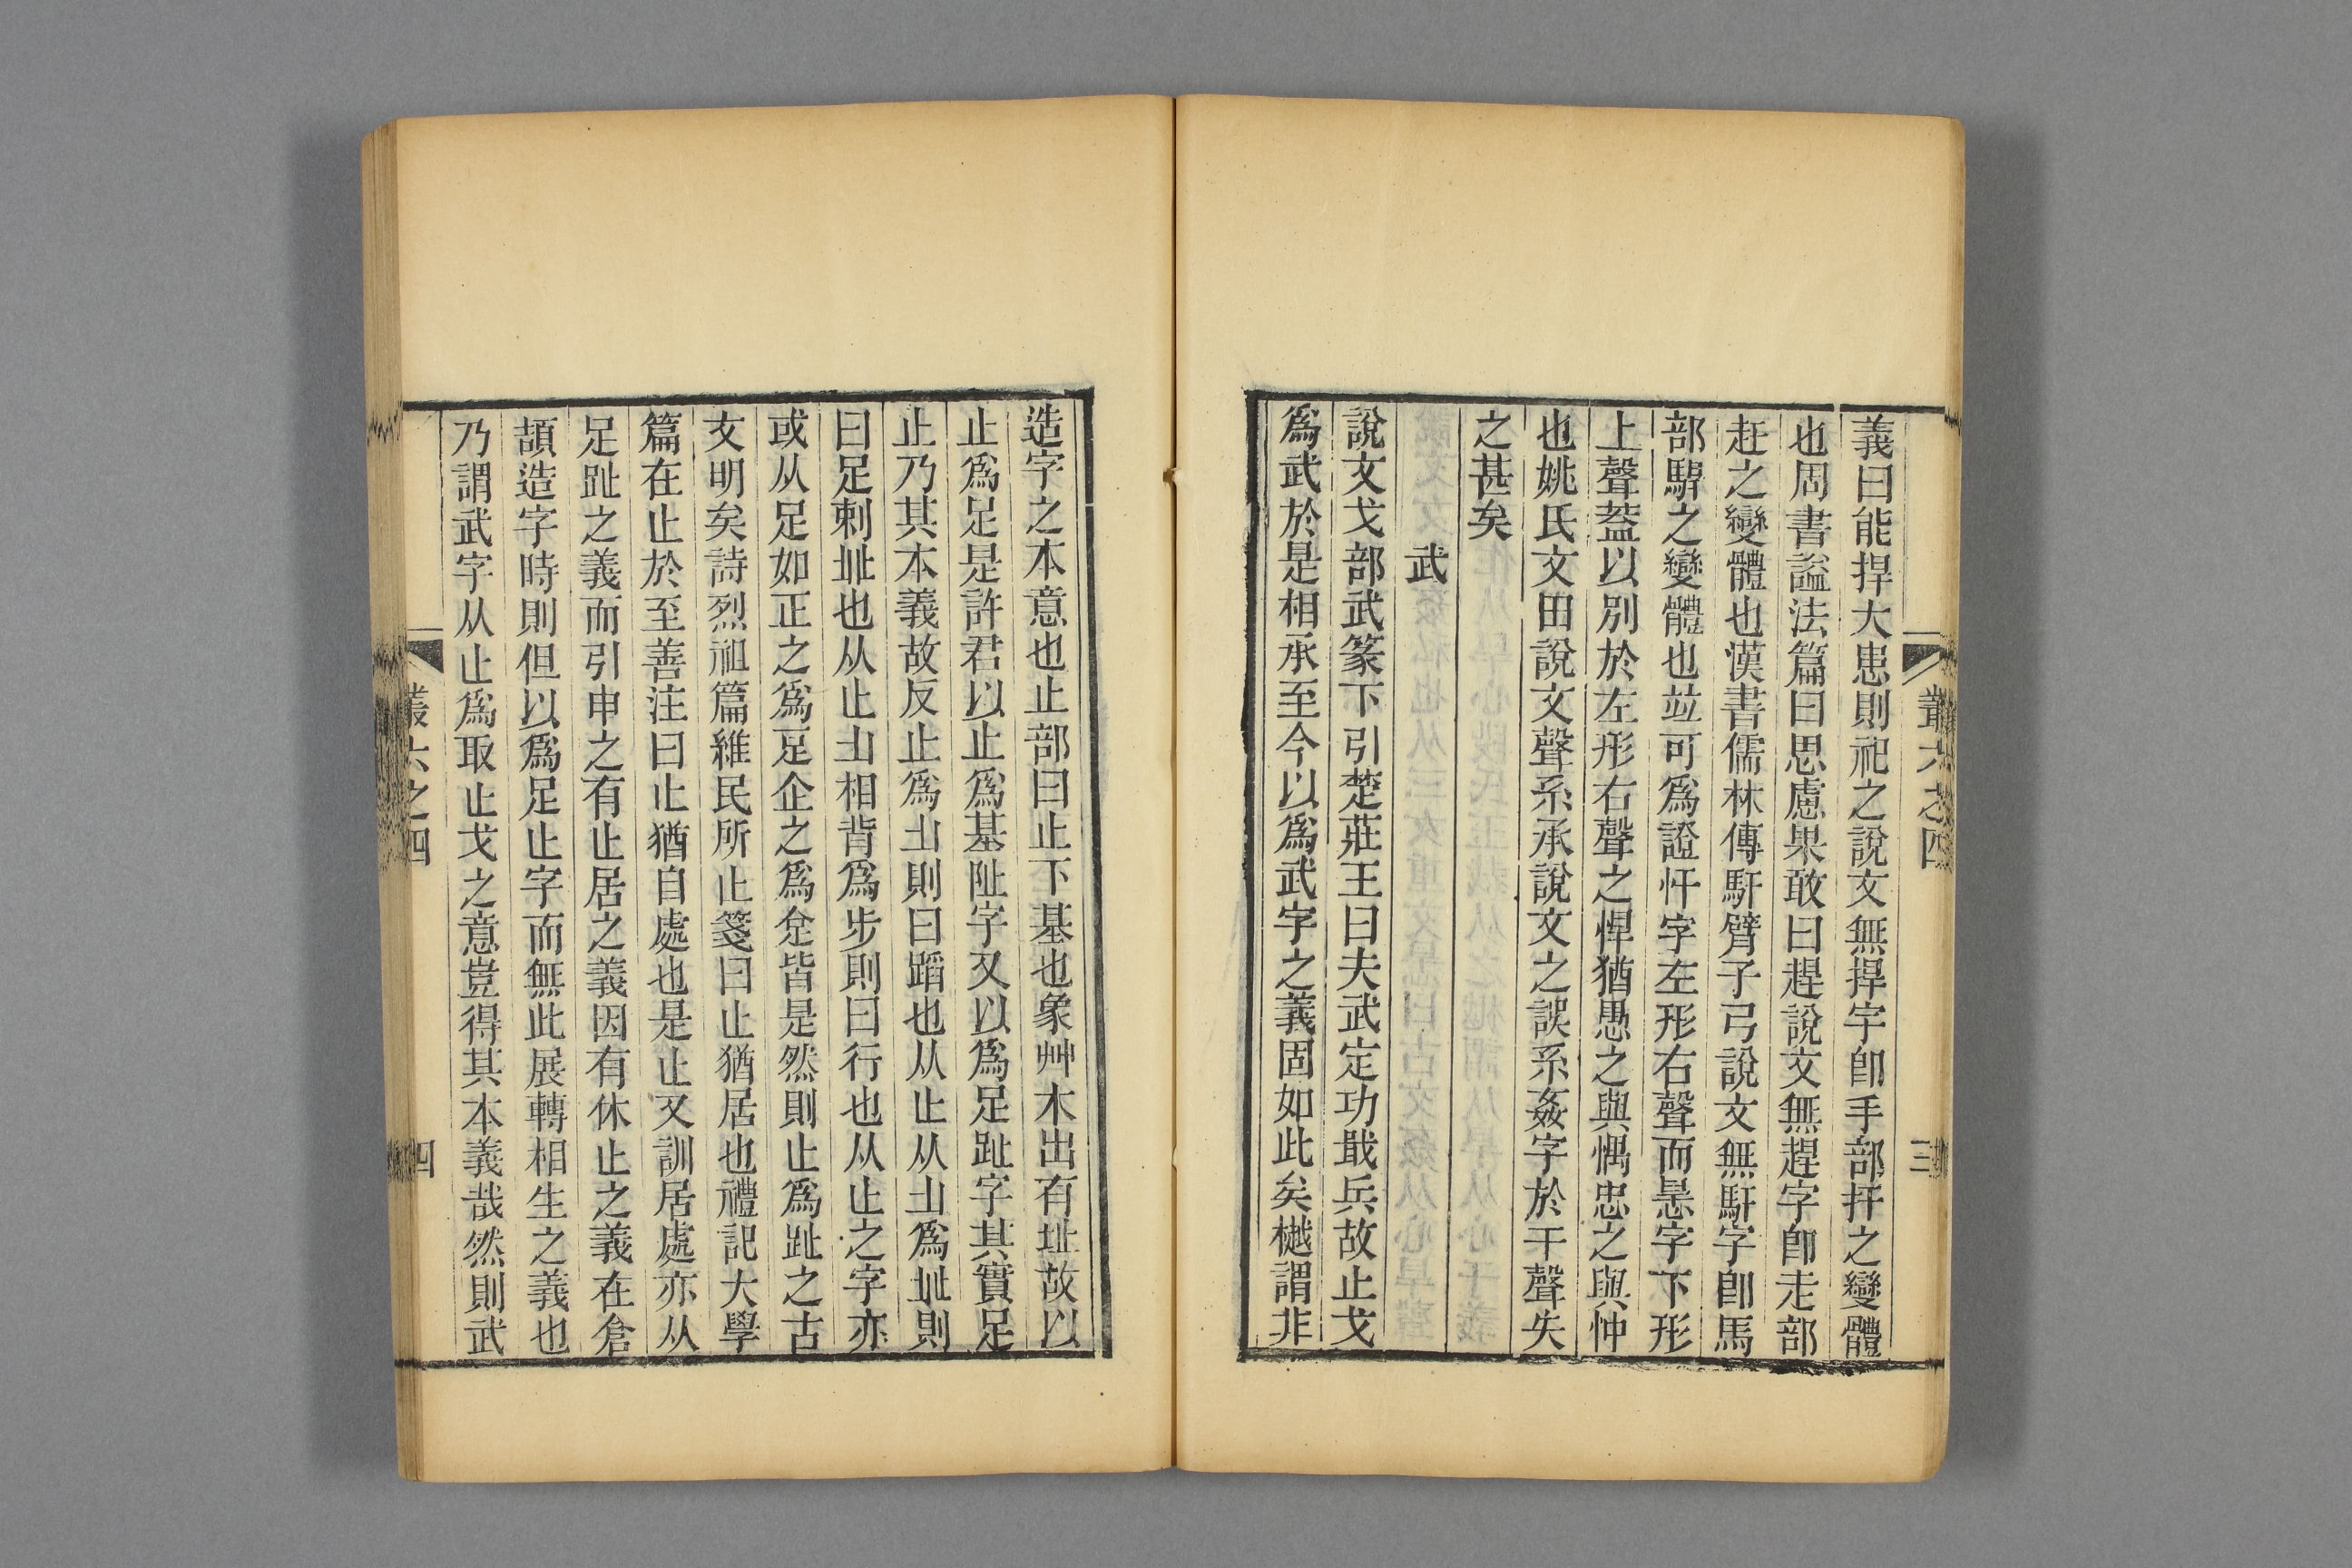 義曰能捍大患則祀之說文無捍字卽手部扞之變體
也周書謚法篇曰思慮果敢曰趕說文無趕字卽走部
赶之變體也漢書儒林傳馯臂子弓說文無馯字卽馬
部駻之變體也竝可爲證忓字左形右聲而㤈字下形
上聲葢以別於左形右聲之悍猶愚之與㥥忠之與忡
也姚氏文田說文聲系承說文之誤系姦字於干聲失
之甚矣
武
說文戈部武篆下引楚莊王曰夫武定功戢兵故止戈
爲武於是相承至今以爲武字之義固如此矣樾謂非
叢六之四
三
造字之本意也止部曰止下基也象艸木出有址故以
止爲足是許君以止爲基阯字又以爲足趾字其實足
止乃其本義故反止爲𣥂則曰蹈也从止从𣥂爲癶則
曰足剌癶也从止𣥂相背爲步則曰行也从止之字亦
或从足如正之爲𤴓企之爲𠈮皆是然則止爲趾之古
文明矣詩烈祖篇維民所止箋曰止猶居也禮記大學
篇在止於至善注曰止猶自處也是止又訓居處亦从
足趾之義而引申之有止居之義因有休止之義在倉
頡造字時則但以爲足止字而無此展轉相生之義也
乃謂武字从止爲取止戈之意豈得其本義哉然則武
叢六之四
四